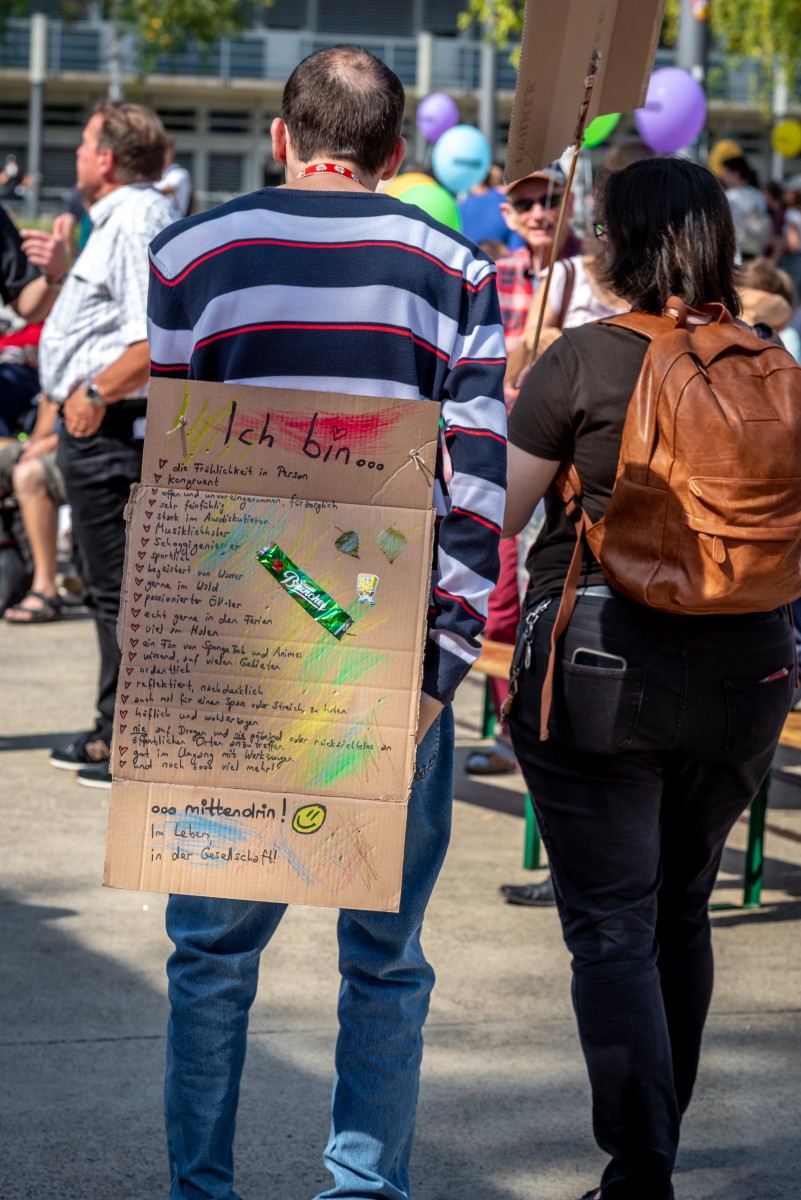 Ich bin...
die Fröhlichkeit in Person
kongruent
offen und unvoreingenommen, fürsorglich
sehr feinfühlig
stark im Ausdiskutieren
Musikliebhaber
Schoggigeniesser
sportlich
begeistert von Wasser
gerne im Wald
passionierter ÖV-ler
echt gerne in den Ferien
viel am Malen
ein Fan von SpongeBob und Animes
wissend, auf vielen Gebieten
ordentlich
reflektiert, nachdenklich
auch mal für einen Spass oder Streich zu haben
höflich und wohlerzogen
nie auf Drogen und nie pöbelnd oder rücksichtslos an
öffentlichen Orten anzutreffen
gut im Umgang mit Werkzeugen
und noch sooo viel mehr!
ooo mittendrin!
Im Leben,
in der Gesellschaft!